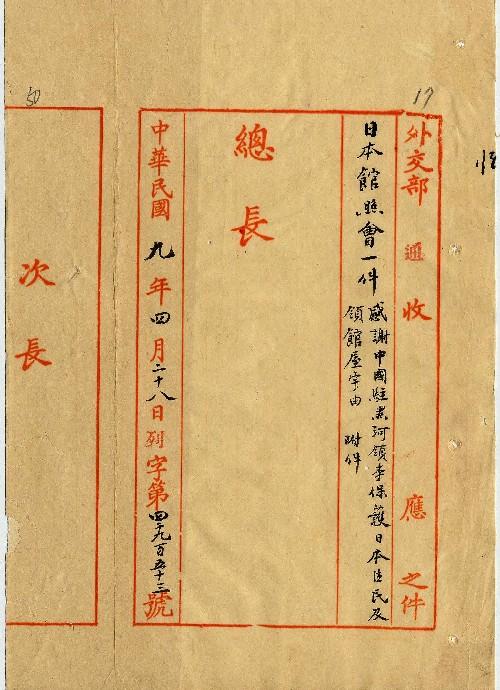 17
外交部 通 收 應 之件
日本館照會一件
感謝中國駐黑河領事保護日本臣民及
領館屋宇由 附件
總長
中華民國九年四月二十八日列字第四千九百五十三號
50
次長